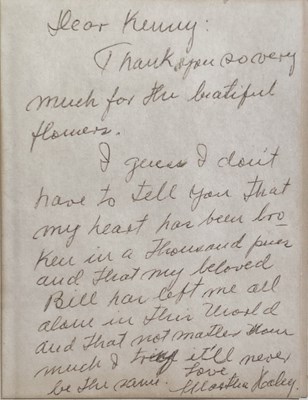 Dear Kenny:
Thank you so very
much for the beatiful
flowers.
I guess I don't
have to tell you that
my heart has been bro-
ken in a thousand pices
and that my beloved
Bill has left me all
alone in this World
and that not matter How
much I try it'll never
be the same. Love
Martha Haley.